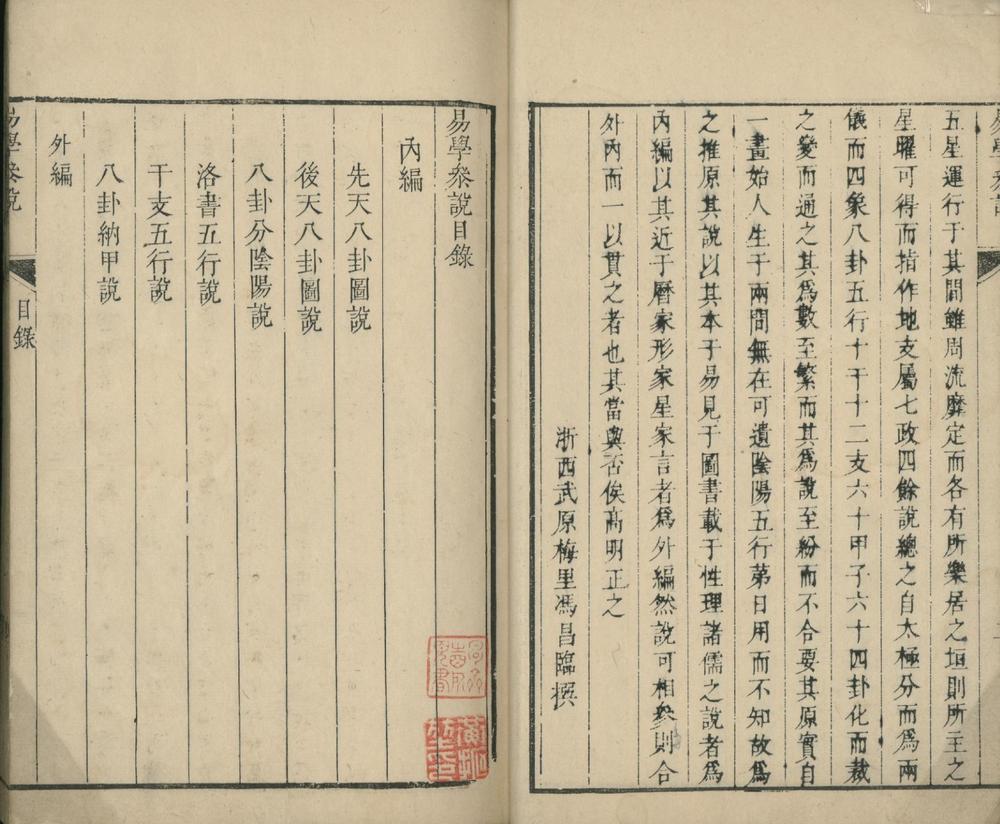 五星運行于其間雖周流靡定而各有所樂居之垣則所主之
星曜可得而指作地支屬七政四餘說總之自太極分而爲兩
儀而四象八卦五行十干十二支六十甲子六十四卦化而裁
之變而通之其爲數至繁而其爲說至紛而不合要其原實自
一畫始人生于兩間無在可遺陰陽五行第日用而不知故爲
之推原其說以其本于易見于圖書載于性理諸儒之說者爲
內編以其近于曆家形家星家言者爲外編然說可相參則合
外內而一以貫之者也其當與否俟高明正之
浙西武原梅里馮昌臨撰
易學參說目錄
內編
先天八卦圖說
後天八卦圖說
八卦分陰陽說
洛書五行說
干支五行說
八卦納甲說
外編
易學參說
目錄